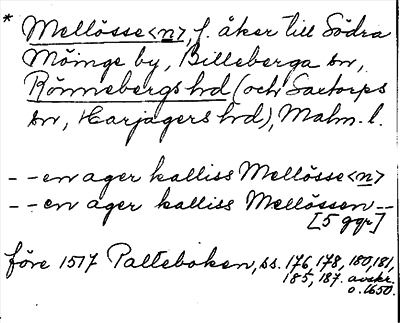 * Mellösse<n>, f. åker till Södra
Möinge by, Billeberga sn,
Rönnebergs hd (och Saxtorps
sn, Harjagers hd), Malm. l.
- - en ager kalliss Mellösse<n>
- - en ager kalliss Mellössen - -
[5 ggr]
före 1517 Palteboken, ss. 176, 178, 180, 181,
185, 187. avskr.
o. 1650.